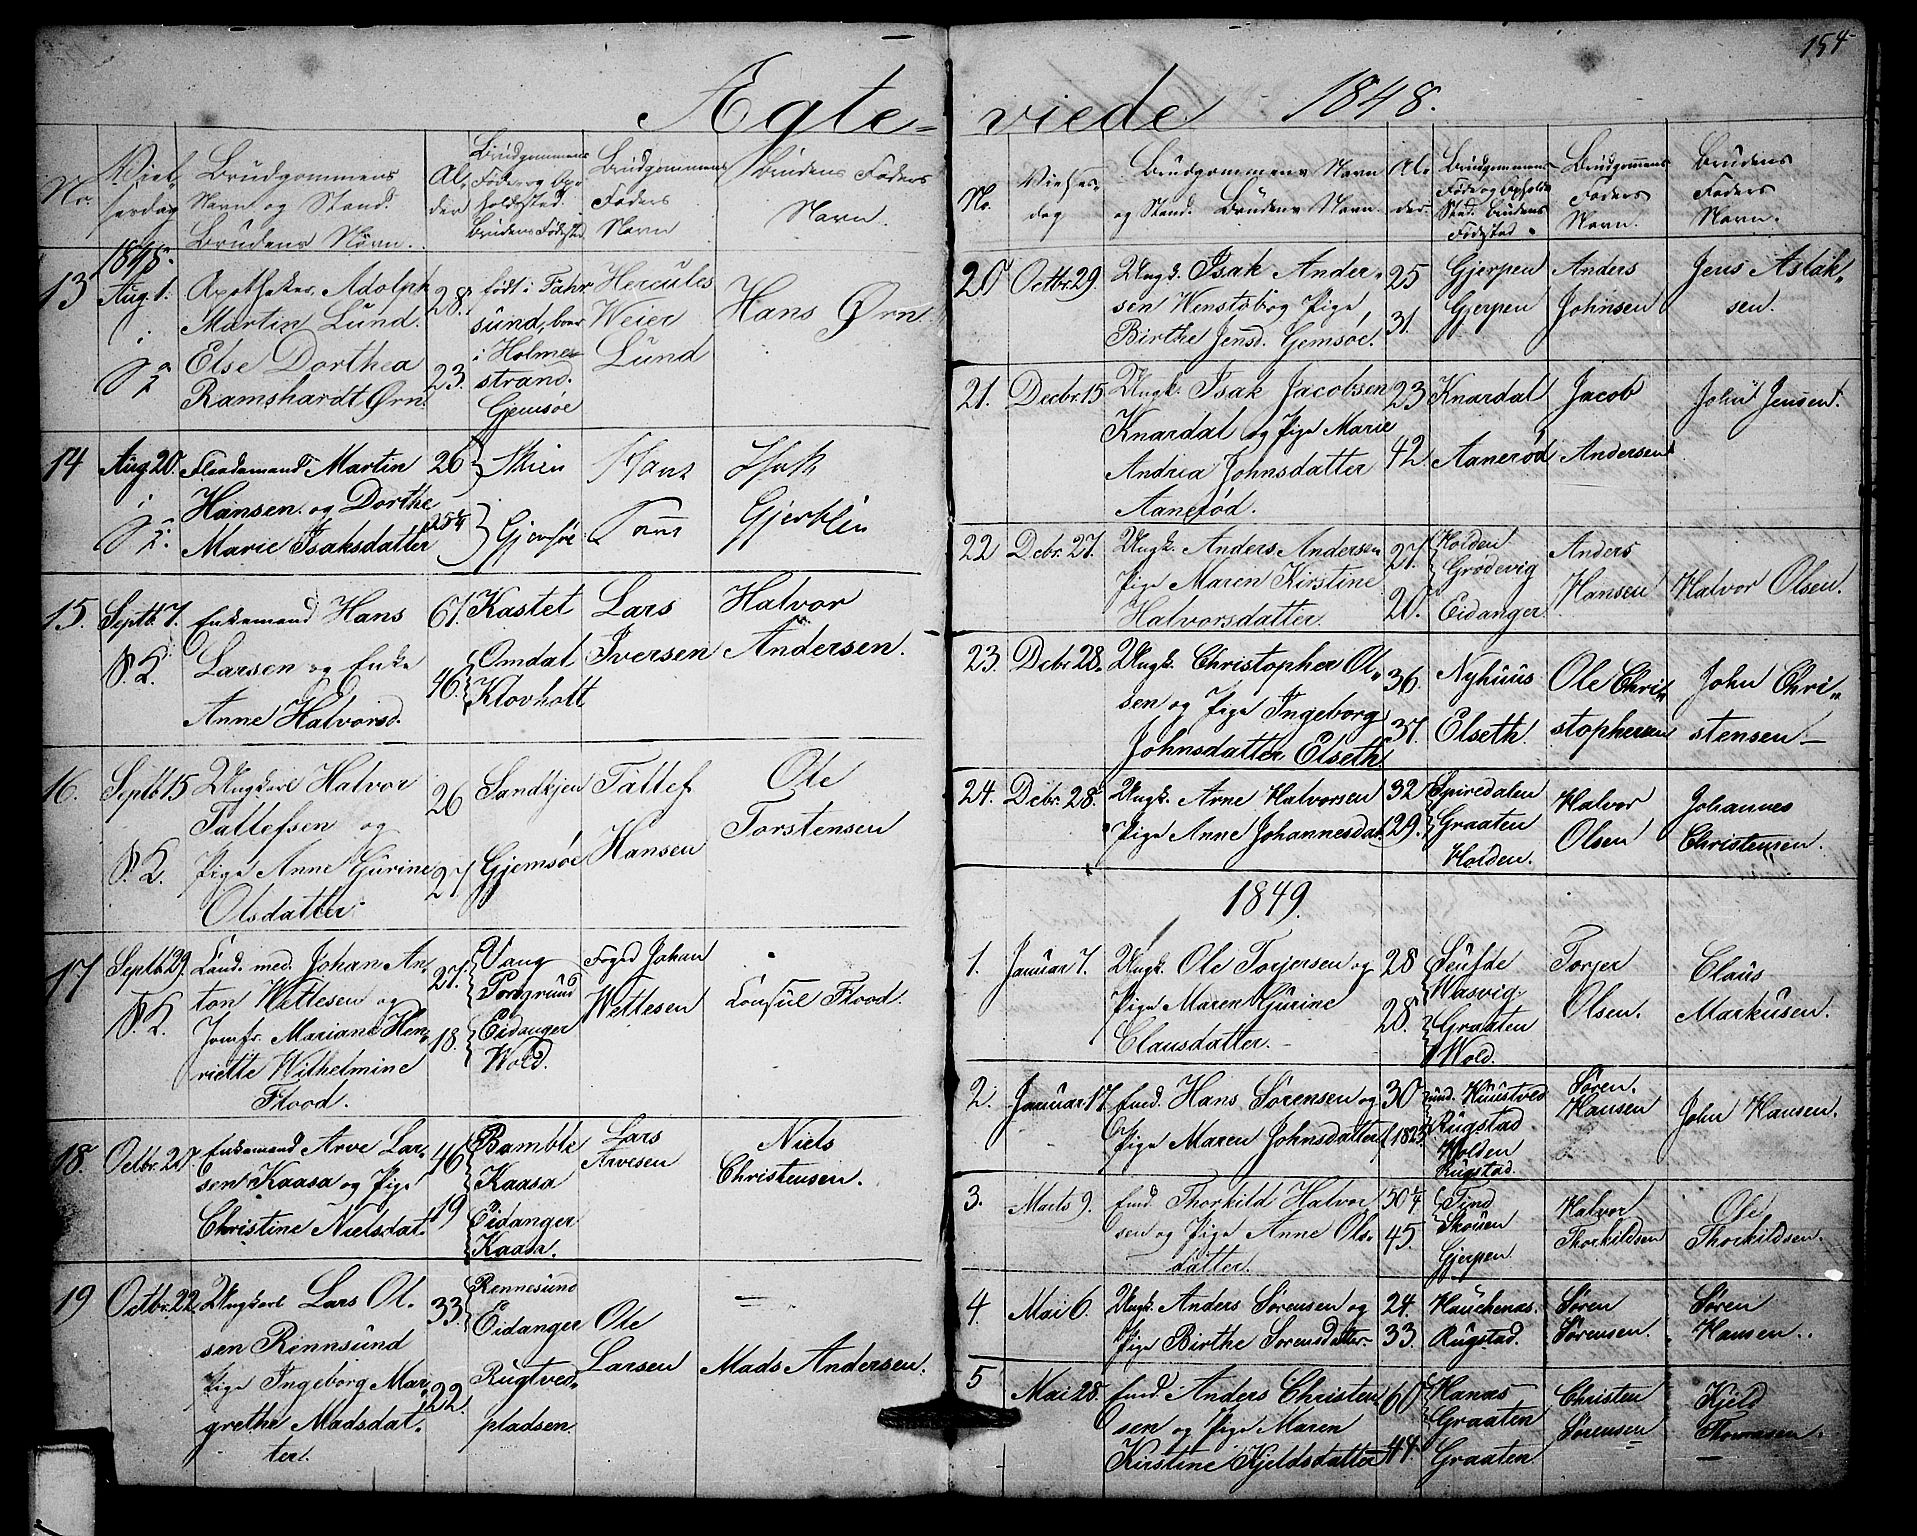 154
Ægte- viede 1848.
No.
Viel-
sesdag
Brudgommens
Navn og Stand.
Brudens Navn.
Al-
der
Brudgommens
Føde og Op-
holdssted.
Brudens Fødested
Brudgommens
Faders
Navn
Brudens Faders
Navn.
1848.
13 Aug. 1. Apotheker Adolph 28. født i Fahr Hercules Hans Ørn
Martin Lund. sund, boer Weier
Else Dorthea 23. i Holme- Lund
Ramshardt Ørn. strand.
Gemsøe
14 Aug. 20. Martin 26 Skien Hans Isak
Hansen og Dorthe Gjemsøe Gjerklin
Marie Isaksdatter
15. Septb. 7. Enkemand Hans 67. Kastet Lars Halvor
Larsen og Enke 46. Omdal Iversen Andersen.
Anne Halvorsd. Klovholt
16. Septb 15 Ungkarl Halvor 26 Sandkjen Tallef Ole
Tallefsen og Hansen Torstensen
Pige Anne Gurine 27 Gjemsøe
Olsdatter
17 Septb 29. Cand. med. Johan An- 27. Vang Foged Johan Consul Flood.
ton Wettesen og Porsgrund Wettesen
Jomfr. Mariane Hen- 18. Eidanger
riette Wilhelmine Wold.
Flood.
18. Octbr. 20. Enkemand Arve Lar- 46 Bamble Lars Niels
sen Kaasa og Pige Kaasa Arvesen Christensen.
Christine Nielsdat. 19 Eidanger
Kaasa.
19 Octbr. 22. Ungkarl Lars Ol- 33. Rennesund Ole Mads Andersen.
sen Rinnsund Eidanger Larsen
Pige Ingeborg Mar- 22. Rugtved-
grethe Madsdat- pladsen.
ter.
No.
Vielses-
dag
Brudgommens Navn
og Stand. Brudens Navn.
Al-
der.
Brudgommens
Føde og Opholds
Sted. Brudens
Fødested.
Brudgommens
Faders
Navn.
Brudens
Faders
Navn.
20 Octbr. 29. Ungk. Isak Ander- 25 Gjerpen Anders Jens Aslak-
sen Wenstøb og Pige 31. Gjerpen Johnsen sen.
Birthe Jensd. Gemsøe.
21. Decbr. 15 Ungk. Isak Jacobsen 23 Knardal Jacob John Jensen.
Knardal og Pige Marie 42. Aanerød Andersen
Andrea Johnsdatter
Aanerød.
22 Dcbr. 27. Ungk. Anders Andersen 27. Holden Anders Halvor Olsen.
Pige Maren Kirstine Grødevig Hansen
Halvorsdatter. 20. Eidanger
23. Dcbr. 28. Ungk. Christopher Ol- 36. Nyhuus Ole Chri- John Chri-
sen og Pige Ingeborg 37. Elseth. stophersen stensen
Johnsdatter Elseth.
24. Dcbr. 28. Ungk. Arne Halvorsen 32 Spiredalen Halvor Johannes
Pige Anne Johannesdat 29. Graaten Olsen Christensen.
Holden.
1849.
1. Januar 7. Ungk. Ole Torjersen og 28 Torjer Claus
Pige Maren Gurine 28. Wasvig Olsen. Markusen.
Clausdatter. Graaten
Wold.
2. Januar 17 Emd. Hans Sørensen og 30 Søren John Hansen.
Pige Maren Johnsdatter 1823 Rugstad Hansen
Holden
Rugstad.
3. Marts 9. Emd. Thorkild Halvor 50 Tind Halvor Ole
sen og Pige Anne Ols- 45. Skouen Thorkildsen Thorkildsen.
datter. Gjerpen
4 Mai 6. Ungk. Anders Sørensen og 24. Hauchenæs. Søren Søren
Pige Birthe Sørensdatter 33. Rugstad. Sørensen. Hansen.
5 Mai 28. Emd. Anders Christen- 60 Hanas Christen Kjeld
sen og Pige Maren Graaten Sørensen Thomasen.
Kirstine Kjeldsdatter 44. Graaten